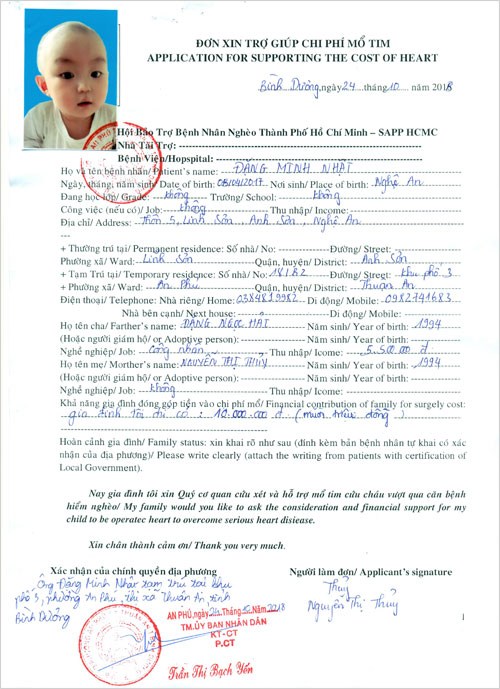 ĐƠN XIN TRỢ GIÚP CHI PHÍ MỔ TIM
APPLICATION FOR SUPPORTING THE COST OF HEART
Bình Dương, ngày 24 tháng 10 năm 2018
Hội Bảo Trợ Bệnh Nhân Nghèo Thành Phố Hồ Chí Minh – SAPP HCMC
Nhà Tài Trợ:
Bệnh Viện/Hopspital:
Họ và tên bệnh nhân/ Patient's name: ĐẶNG MINH NHẬT
Ngày, tháng, năm sinh/ Date of birth: 08/09/2017 Nơi sinh/ Place of birth: Nghệ An
Đang học lớp/ Grade: không Trường/ School: không
Công việc (nếu có)/ Job: không Thu nhập/ Income:
Địa chỉ/ Address: Thôn 5, Lĩnh Sơn, Anh Sơn, Nghệ An
+ Thường trú tại/ Permanent residence: Số nhà/ No: Đường/ Street:
Phường xã/ Ward: Lĩnh Sơn Quận, huyện/ District: Anh Sơn
+ Tạm Trú tại/ Temporary residence: Số nhà/ No: Đường/ Street: Khu phố 3
+ Phường xã/ Ward: An Phú Quận, huyện/ District: Thuận An
Điện thoại/ Telephone: Nhà riêng/ Home: 0384839982 Di động/ Mobile: 0982741683
Nhà bên cạnh/ Next house: Di động/ Mobile:
Họ tên cha/ Farther's name: ĐẶNG NGỌC HẢI Năm sinh/ Year of birth: 1994
(Hoặc người giám hộ/ or Adoptive person): Năm sinh/ Year of birth:
Nghề nghiệp/ Job: Công nhân Thu nhập/ Icome: 5.500.000 đ
Họ tên mẹ/ Morther's name: NGUYỄN THỊ THỦY Năm sinh/ Year of birth: 1994
(Hoặc người giám hộ/ or Adoptive person): Năm sinh/ Year of birth:
Nghề nghiệp/ Job: không Thu nhập/ Income:
Khả năng gia đình đóng góp tiền vào chi phí mổ/ Financial contribution of family for surgely cost:
gia đình tôi đủ có : 10.000.000 đ (mười triệu đồng)
Hoàn cảnh gia đình/ Family status: xin khai rõ như sau (đính kèm bản bệnh nhân tự khai có xác
nhận của địa phương)/ Please write clearly (attach the writing from patients with certification of
Local Government).
Nay gia đình tôi xin Quý cơ quan cứu xét và hỗ trợ mổ tim cứu cháu vượt qua căn bệnh
hiểm nghèo/ My family would you like to ask the consideration and financial support for my
child to be operatec heart to overcome serious heart disiease.
Xin chân thành cảm ơn/ Thank you very much.
Xác nhận của chính quyền địa phương Người làm đơn/ Applicant's signature
Ông Đặng Minh Nhật tạm trú tại khu
phố 3, phường An Phú, thị xã Thuận An, tỉnh
Bình Dương
Thủy
Nguyễn Thị Thủy
AN PHÚ, ngày 24 Tháng 10 Năm 2018
TM.ỦY BAN NHÂN DÂN
KT-CT
P.CT
Trần Thị Bạch Yến
1